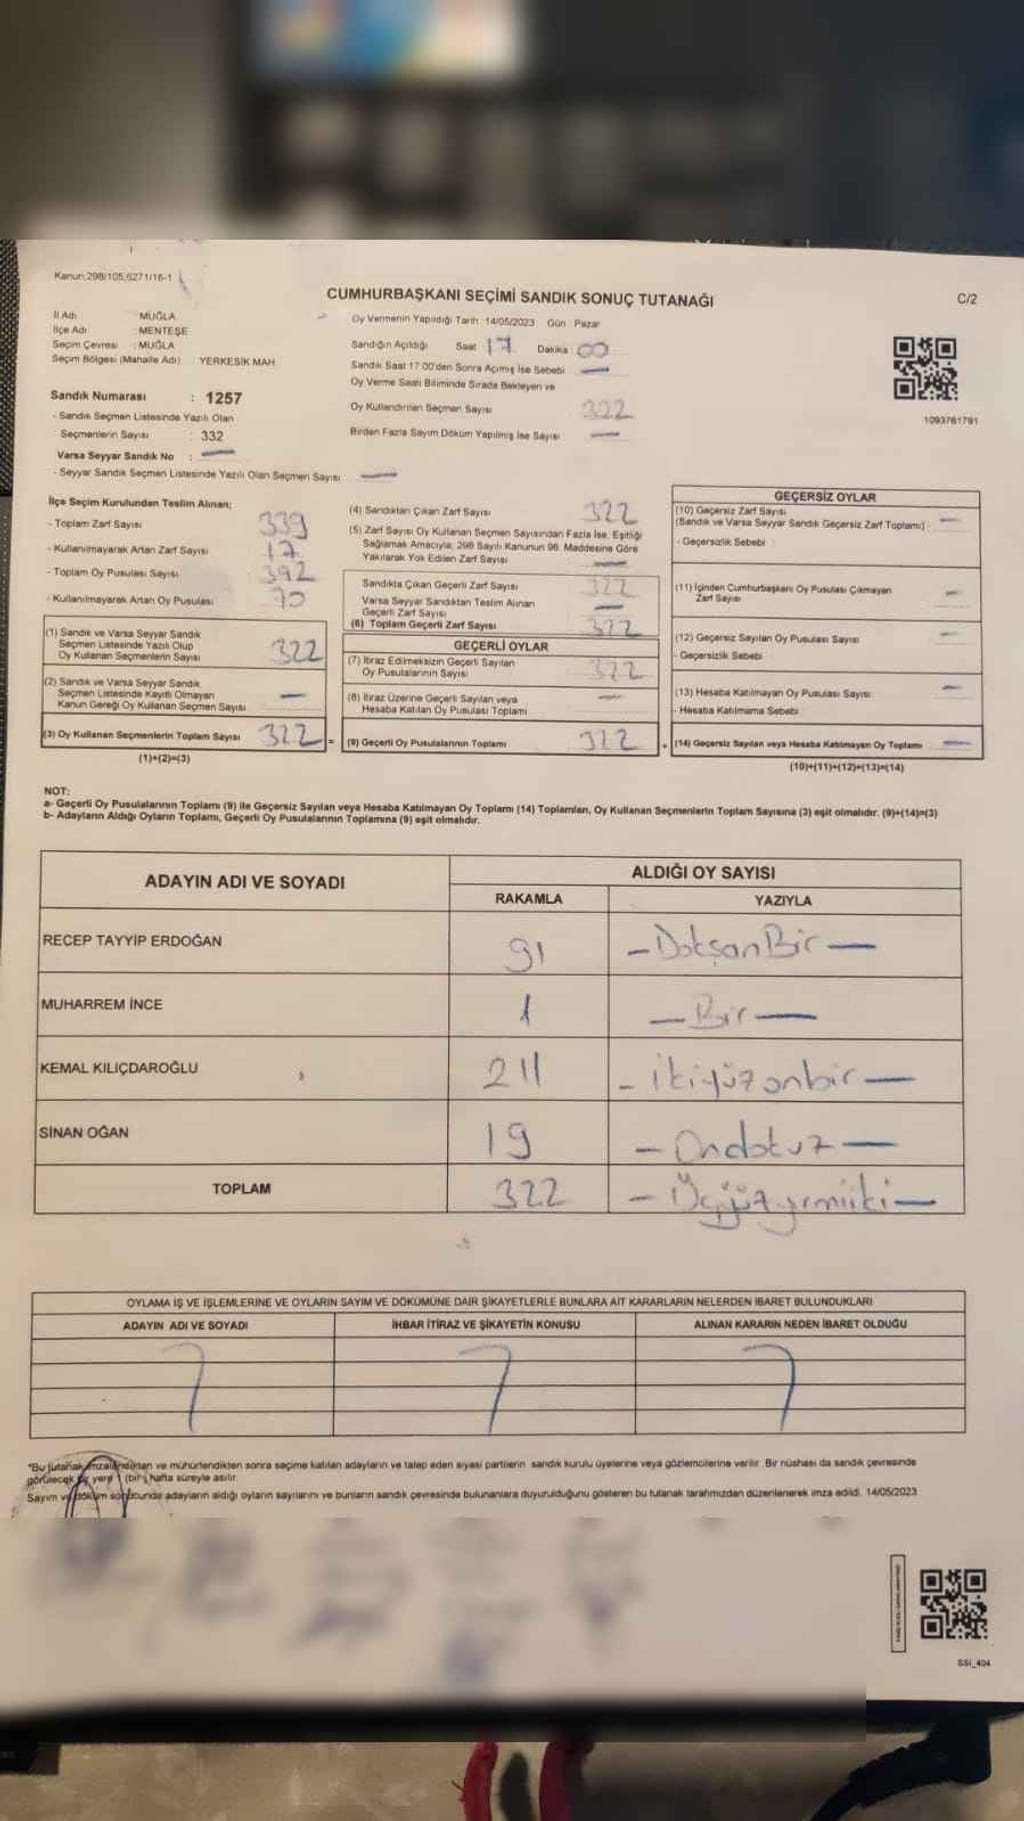 Kanun:298/105,6271/16-1
CUMHURBAŞKANI SEÇİMİ SANDIK SONUÇ TUTANAĞI
C/2
İl Adı : MUĞLA
İlçe Adı : MENTEŞE
Seçim Çevresi : MUĞLA
Seçim Bölgesi (Mahalle Adı) : YERKESİK MAH
Oy Vermenin Yapıldığı Tarih: 14/05/2023 Gün : Pazar
Sandığın Açıldığı Saat 17 Dakika : 00
Sandık Saat 17:00'den Sonra Açımış İse Sebebi —
Oy Verme Saati Bitiminde Sırada Bekleyen ve
Oy Kullandırılan Seçmen Sayısı 322
Birden Fazla Sayım Döküm Yapılmış İse Sayısı —
1093761791
Sandık Numarası : 1257
- Sandık Seçmen Listesinde Yazılı Olan
Seçmenlerin Sayısı : 332
Varsa Seyyar Sandık No : —
- Seyyar Sandık Seçmen Listesinde Yazılı Olan Seçmen Sayısı —
İlçe Seçim Kurulundan Teslim Alınan;
- Toplam Zarf Sayısı 339
- Kullanılmayarak Artan Zarf Sayısı 17
- Toplam Oy Pusulası Sayısı 392
- Kullanılmayarak Artan Oy Pusulası 70
(1) Sandık ve Varsa Seyyar Sandık
Seçmen Listesinde Yazılı Olup
Oy Kullanan Seçmenlerin Sayısı 322
(2) Sandık ve Varsa Seyyar Sandık
Seçmen Listesinde Kayıtlı Olmayan
Kanun Gereği Oy Kullanan Seçmen Sayısı —
(3) Oy Kullanan Seçmenlerin Toplam Sayısı 322 =
(1)+(2)=(3)
(4) Sandıktan Çıkan Zarf Sayısı 322
(5) Zarf Sayısı Oy Kullanan Seçmen Sayısından Fazla İse, Eşitliği
Sağlamak Amacıyla, 298 Sayılı Kanunun 98. Maddesine Göre
Yakılarak Yok Edilen Zarf Sayısı —
Sandıkta Çıkan Geçerli Zarf Sayısı 322
Varsa Seyyar Sandıktan Teslim Alınan
Geçerli Zarf Sayısı —
(6) Toplam Geçerli Zarf Sayısı 322
GEÇERLİ OYLAR
(7) İtiraz Edilmeksizin Geçerli Sayılan
Oy Pusulalarının Sayısı 322
(8) İtiraz Üzerine Geçerli Sayılan veya
Hesaba Katılan Oy Pusulası Toplamı —
(9) Geçerli Oy Pusulalarının Toplamı 322 +
GEÇERSİZ OYLAR
(10) Geçersiz Zarf Sayısı
(Sandık ve Varsa Seyyar Sandık Geçersiz Zarf Toplamı) —
- Geçersizlik Sebebi :
(11) İçinden Cumhurbaşkanı Oy Pusulası Çıkmayan
Zarf Sayısı —
(12) Geçersiz Sayılan Oy Pusulası Sayısı —
- Geçersizlik Sebebi
(13) Hesaba Katılmayan Oy Pusulası Sayısı —
- Hesaba Katılmama Sebebi
(14) Geçersiz Sayılan veya Hesaba Katılmayan Oy Toplamı —
(10)+(11)+(12)+(13)=(14)
NOT:
a- Geçerli Oy Pusulalarının Toplamı (9) ile Geçersiz Sayılan veya Hesaba Katılmayan Oy Toplamı (14) Toplamları, Oy Kullanan Seçmenlerin Toplam Sayısına (3) eşit olmalıdır. (9)+(14)=(3)
b- Adayların Aldığı Oyların Toplamı, Geçerli Oy Pusulalarının Toplamına (9) eşit olmalıdır.
ADAYIN ADI VE SOYADI
ALDIĞI OY SAYISI
RAKAMLA YAZIYLA
RECEP TAYYİP ERDOĞAN 91 — Doksan Bir —
MUHARREM İNCE 1 — Bir —
KEMAL KILIÇDAROĞLU 211 — ikiyüzonbir —
SİNAN OĞAN 19 — Ondokuz —
TOPLAM 322 — Üçyüzyirmiiki —
OYLAMA İŞ VE İŞLEMLERİNE VE OYLARIN SAYIM VE DÖKÜMÜNE DAİR ŞİKAYETLERLE BUNLARA AİT KARARLARIN NELERDEN İBARET BULUNDUKLARI
ADAYIN ADI VE SOYADI İHBAR İTİRAZ VE ŞİKAYETİN KONUSU ALINAN KARARIN NEDEN İBARET OLDUĞU
*Bu tutanak imzalandıktan ve mühürlendikten sonra seçime katılan adayların ve talep eden siyasi partilerin sandık kurulu üyelerine veya gözlemcilerine verilir. Bir nüshası da sandık çevresinde
görülecek bir yere (bir) hafta süreyle asılır.
Sayım ve döküm sonucunda adayların aldığı oyların sayılarını ve bunların sandık çevresinde bulunanlara duyurulduğunu gösteren bu tutanak tarafımızdan düzenlenerek imza edildi. 14/05/2023
SSI_404